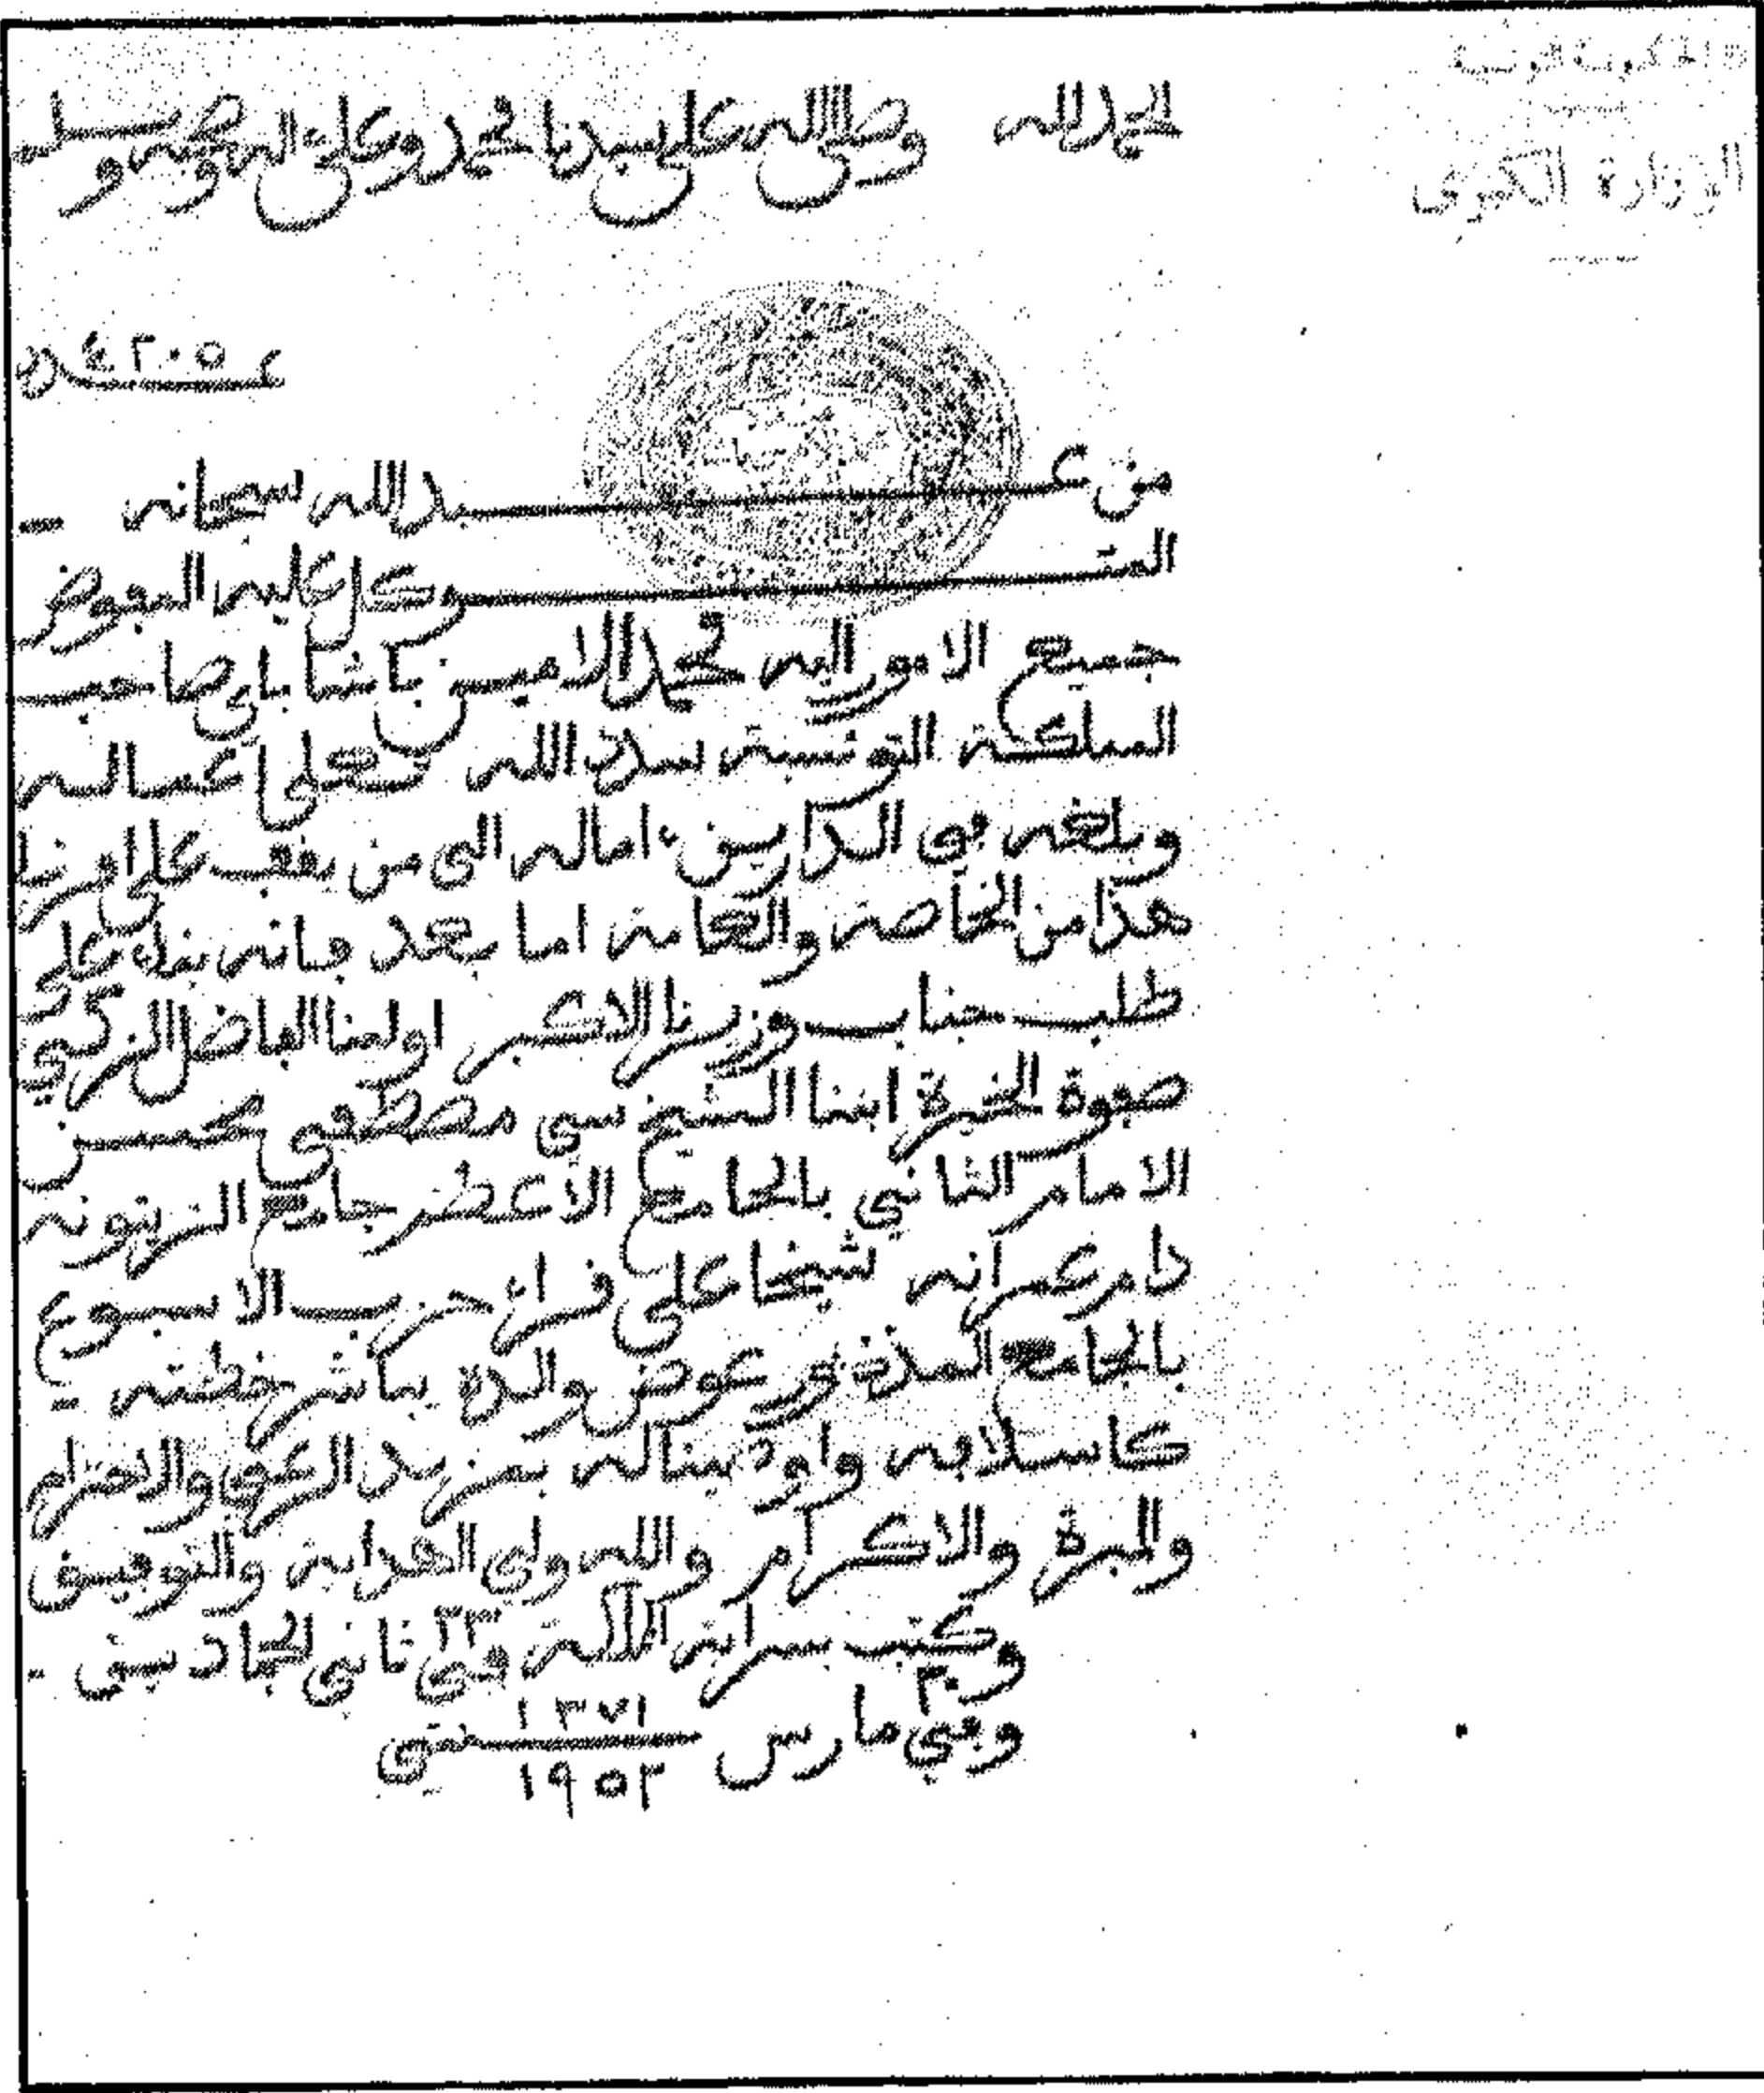 الحكومة التونسية
الوزارة الكبرى
الحمد لله وصلى الله على سيدنا محمد وعلى اله وصحبه وسلم
عـ٤٢٠٥ـدد
من عبد الله سبحانه
المتوكل عليه المفوض
جميع الامور اليه محمد الامين باشا باي صاحب
المملكة التونسية سدد الله تعلى اعماله
وبلغه في الدارين ءاماله الى من يقف على امرنا
هذا من الخاصة والعامة اما بعد فانه بناء على
طلب جناب وزيرنا الاكبر اولينا الفاضل الزكي
صفوة الخيرة ابننا الشيخ سي مصطفى محسن
الامام الثاني بالجامع الاعظم جامع الزيتونه
دام عمرانه شيخا على قراء حزب الاسبوع
بالجامع المذكور عوض والده يباشر خطته
كاسلافه واوصينا له بمزيد الرعي والاحترام
والمبرة والاكرام والله ولي الهداية والتوفيق
وكتب بسراية المملكة في ٢٣ ثاني الجمادين
وفي ٢٠ مارس ١٣٧١ سنتي
١٩٥٢